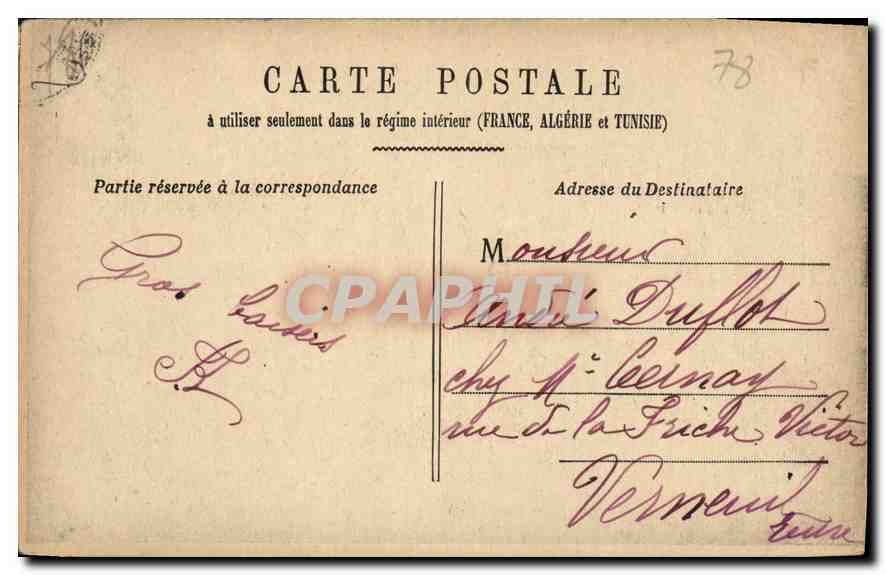 78
CARTE POSTALE
à utiliser seulement dans le régime intérieur (FRANCE, ALGÉRIE et TUNISIE)
Partie réservée à la correspondance
Adresse du Destinataire
Gros baisers
Monsieur
André Duflot
chez Mr Cernay
rue de la Friche Victor
Verneuil
Eure
CPAPHIL